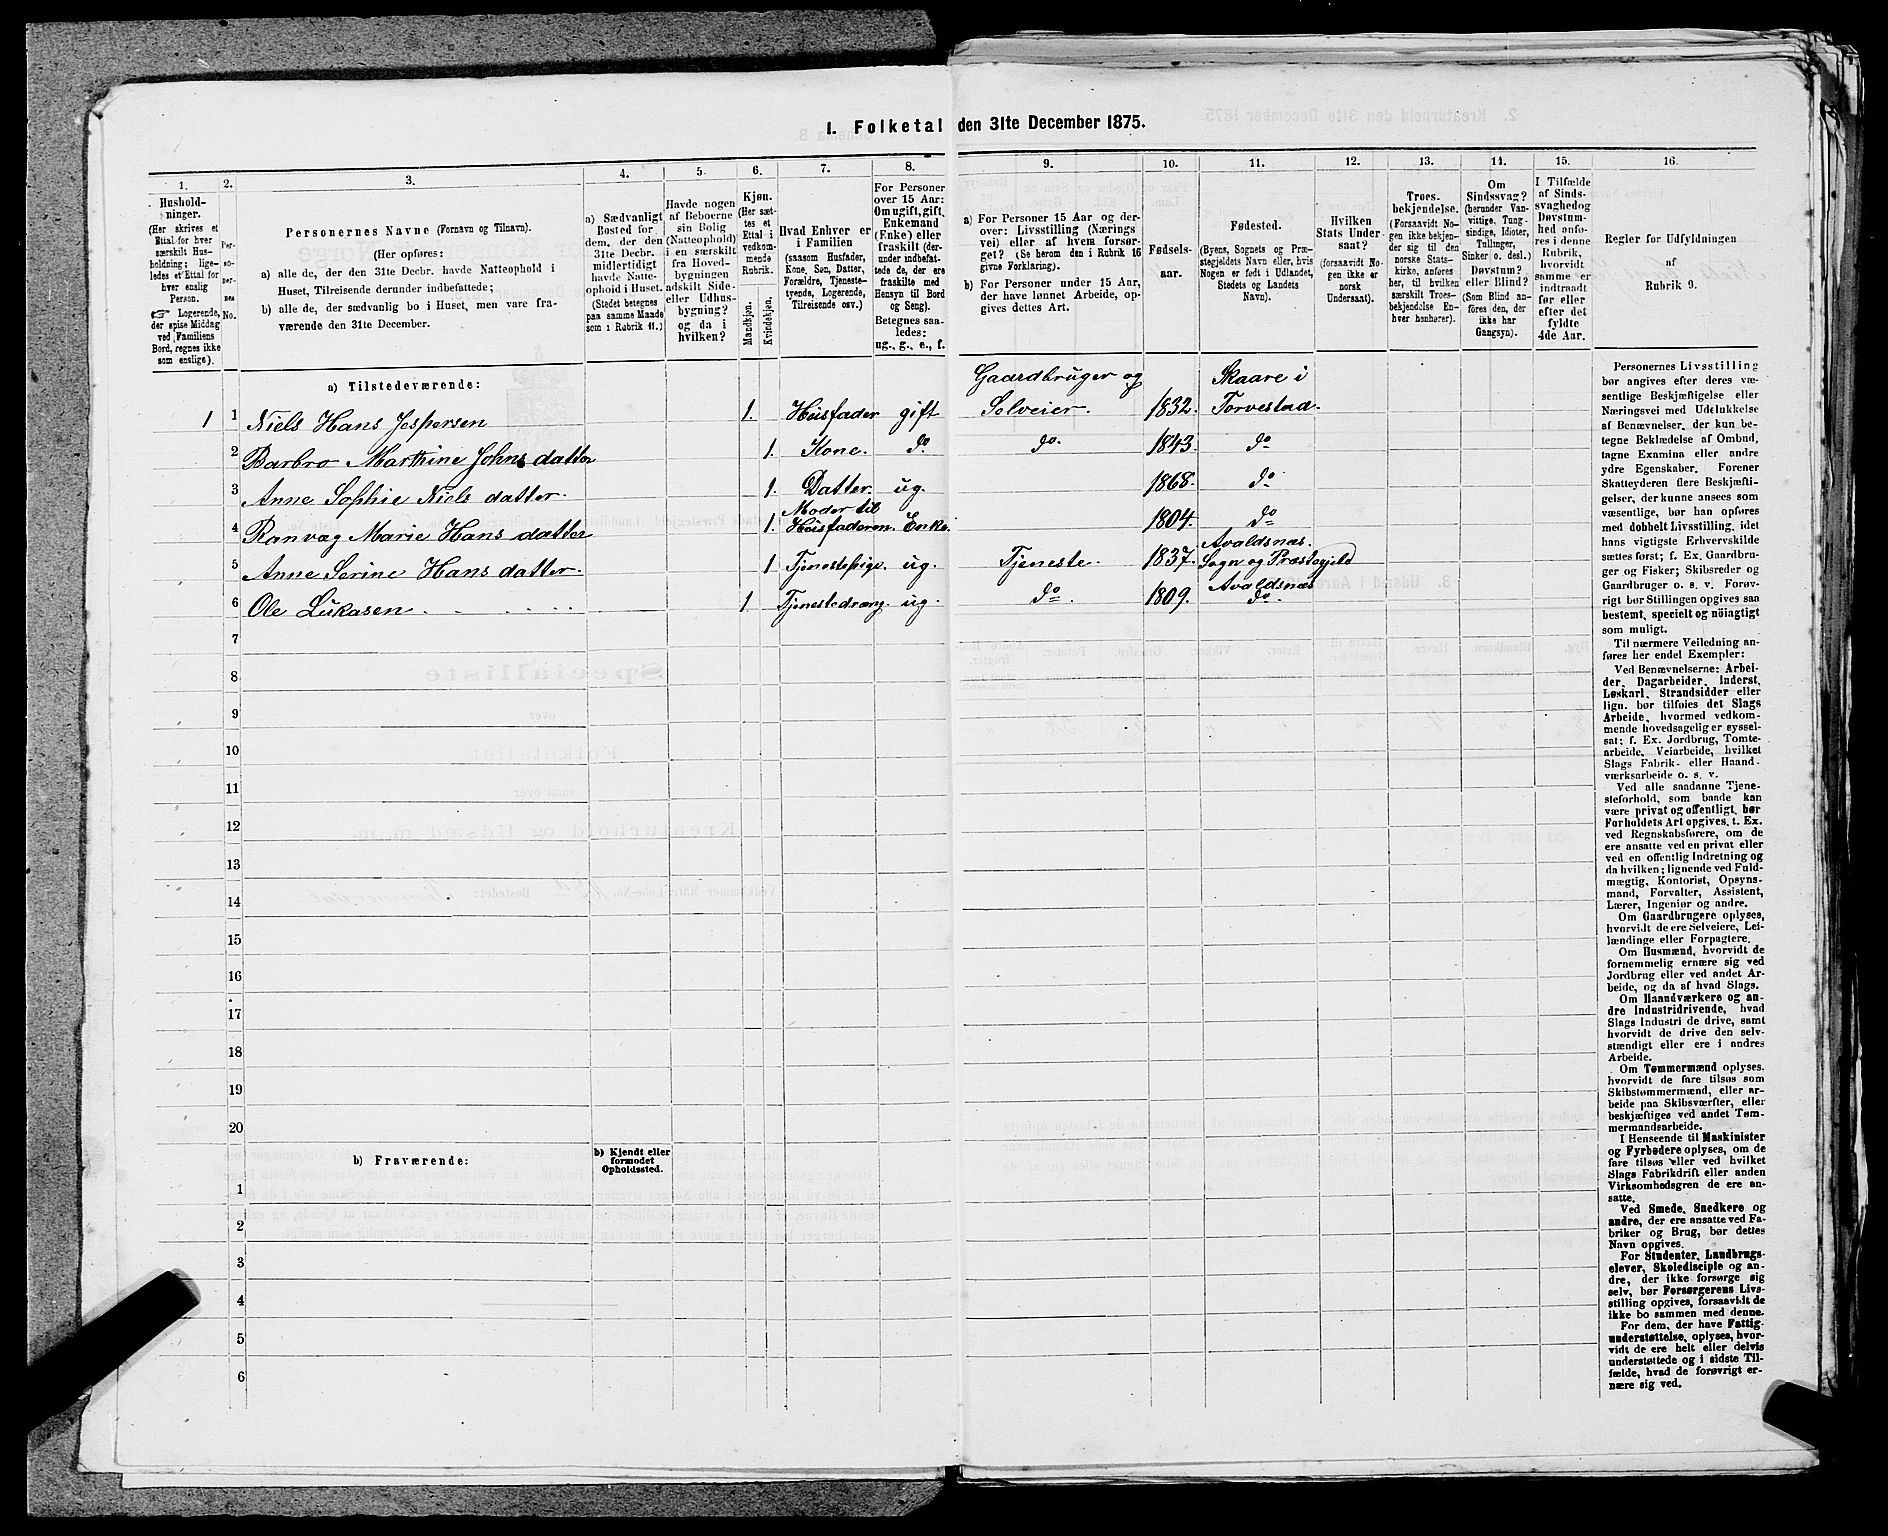 1. Folketal den 31te December 1875.
1.
2.
3.
4.
5.
6.
7.
8.
9.
10.
11.
12.
13.
14.
15.
16.
Hushold-
ninger.
(Her skrives et
Ettal for hver
særskilt Hus-
holdning; lige-
ledes et Ettal for
hver enslig
Person.
☞ Logerende,
der spise Middag
ved Familiens
Bord, regnes ikke
som enslige).
Per-
so-
ner-
nes
No.
Personernes Navne (Fornavn og Tilnavn).
(Her opføres:
a) alle de, der den 31te Decbr. havde Natteophold i
Huset, Tilreisende derunder indbefattede;
b) alle de, der sædvanlig bo i Huset, men vare fra-
værende den 31te December.
a) Sædvanligt
Bosted for
dem, der den
31te Decbr.
midlertidigt
havde Natte-
ophold i Huset.
(Stedet betegnes
paa samme Maade
som i Rubrik 11.)
Havde nogen
af Beboerne
sin Bolig
(Natteophold)
i en særskilt
fra Hoved-
bygningen
adskilt Side-
eller Udhus-
bygning?
og da i
hvilken?
Kjøn.
(Her sæt-
tes et
Ettal i
vedkom-
mende
Rubrik.
Mandkjøn.
Kvindekjøn.
Hvad Enhver er
i Familien
(saasom Husfader,
Kone, Søn, Datter,
Forældre, Tjeneste-
tyende, Logerende,
Tilreisende osv.)
For Personer
over 15 Aar:
Om ugift, gift,
Enkemand
(Enke) eller
fraskilt (der-
under indbefat-
tede de, der ere
fraskilte med
Hensyn til Bord
og Seng).
Betegnes saa-
ledes:
ug., g., e., f.
a) For Personer 15 Aar og der-
over: Livsstilling (Nærings
vei) eller af hvem forsør-
get? (Se herom den i Rubrik 16
givne Forklaring).
b) For Personer under 15 Aar,
der have lønnet Arbeide, op-
gives dettes Art.
Fødsels-
aar.
Fødested.
(Byens, Sognets og Præ-
stegjeldets Navn eller, hvis
Nogen er født i Udlandet,
Stedets og Landets
Navn).
Hvilken
Stats Under-
saat?
(forsaavidt No-
gen ikke er
norsk
Undersaat).
Troes-
bekjendelse.
(Forsaavidt No-
gen ikke bekjen-
der sig til den
norske Stats-
kirke, anføres
her, til hvilken
særskilt Troes-
bekjendelse En-
hver henhører).
Om
Sindssvag?
(herunder Van-
vittige, Tung-
sindige, Idioter,
Tullinger,
Sinker o. desl.)
Døvstum?
eller Blind?
(Som Blind an-
føres den, der
ikke har
Gangsyn).
I Tilfælde
af Sinds-
svaghed og
Døvstum-
hed, anfø-
res i denne
Rubrik,
hvorvidt
samme er
indtraadt
før eller
efter det
fyldte
4de Aar.
Regler for Udfyldningen
af
Rubrik 9.
a) Tilstedeværende:
Gaardbruger og
Skaare i
1 1 Niels Hans Jespersen 1. Husfader gift Selveier. 1832. Torvestad.
2 Barbro Marthine Johnsdatter 1. Kone. do do. 1843. do
3 Anne Sophie Nielsdatter. 1. Datter. ug. 1868. do
Moder til
4 Ranvæg Marie Hansdatter 1. Husfaderen. Enke. 1804. do
Avaldsnæs.
5 Anne Serine Hansdatter. 1 Tjenestepige. ug. Tjeneste. 1837. Sogn og Præstegjeld
Avaldsnæs
6 Ole Lukasen 1 Tjenestedreng. ug. do. 1809. do.
7
8
9
10
11
12
13
14
15
16
17
18
19
20
b) Fraværende:
b) Kjendt eller
formodet
Opholdssted.
1
2
3
4
5
6
Personernes Livsstilling
bør angives efter deres væ-
sentlige Beskjæftigelse eller
Næringsvei med Udelukkelse
af Benævnelser, der kun be-
tegne Beklædelse af Ombud,
tagne Examina eller andre
ydre Egenskaber. Forener
Skatteyderen flere Beskjæfti-
gelser, der kunne ansees som
væsentlige, bør han opføres
med dobbelt Livsstilling, idet
hans vigtigste Erhvervskilde
sættes først; f. Ex. Gaardbru-
ger og Fisker; Skibsreder og
Gaardbruger o. s. v. Forøv-
rigt bør Stillingen opgives saa
bestemt, specielt og nöiagtigt
som muligt.
Til nærmere Veiledning an-
føres her endel Exempler:
Ved Benævnelserne: Arbei-
der, Dagarbeider, Inderst,
Løskarl, Strandsidder eller
lign. bør tilføies det Slags
Arbeide, hvormed vedkom-
mende hovedsagelig er syssel-
sat; f. Ex. Jordbrug, Tomte-
arbeide, Veiarbeide, hvilket
Slags Fabrik- eller Haand-
værksarbeide o. s. v.
Ved alle saadanne Tjene-
steforhold, som baade kan
være privat og offentligt, bør
Forholdets Art opgives, t. Ex.
ved Regnskabsførere, om de
ere ansatte ved en privat eller
ved en offentlig Indretning og
da hvilken; lignende ved Fuld-
mægtig, Kontorist, Opsyns-
mand, Forvalter, Assistent,
Lærer, Ingeniør og andre.
Om Gaardbrugere oplyses,
hvorvidt de ere Selveiere, Lei-
lændinge eller Forpagtere.
Om Husmænd, hvorvidt de
fornemmelig ernære sig ved
Jordbrug eller ved andet Ar-
beide, og da af hvad Slags.
Om Haandværkere og an-
dre Industridrivende, hvad
Slags Industri de drive, samt
hvorvidt de drive den selv-
stændigt eller ere i andres
Arbeide.
Om Tømmermænd oplyses,
hvorvidt de fare tilsøs som
Skibstømmermænd, eller ar-
beide paa Skibsværfter, eller
beskjæftiges ved andet Tøm-
mermandsarbeide.
I Henseende til Maskinister
og Fyrbødere oplyses, om de
fare tilsøs eller ved hvilket
Slags Fabrikdrift eller anden
Virksomhedsgren de ere an-
satte.
Ved Smede, Snedkere og
andre, der ere ansatte ved Fa-
briker og Brug, bør dettes
Navn opgives.
For Studenter, Landbrugs-
elever, Skoledisciple og an-
dre, der ikke forsørge sig
selv, bør Forsørgerens Livs-
stilling opgives, forsaavidt de
ikke bo sammen med denne.
For dem, der have Fattig-
understøttelse, oplyses, hvor-
vidt de ere helt eller delvis
understøttede og i sidste Til-
fælde, hvad de forøvrigt er-
nære sig ved.